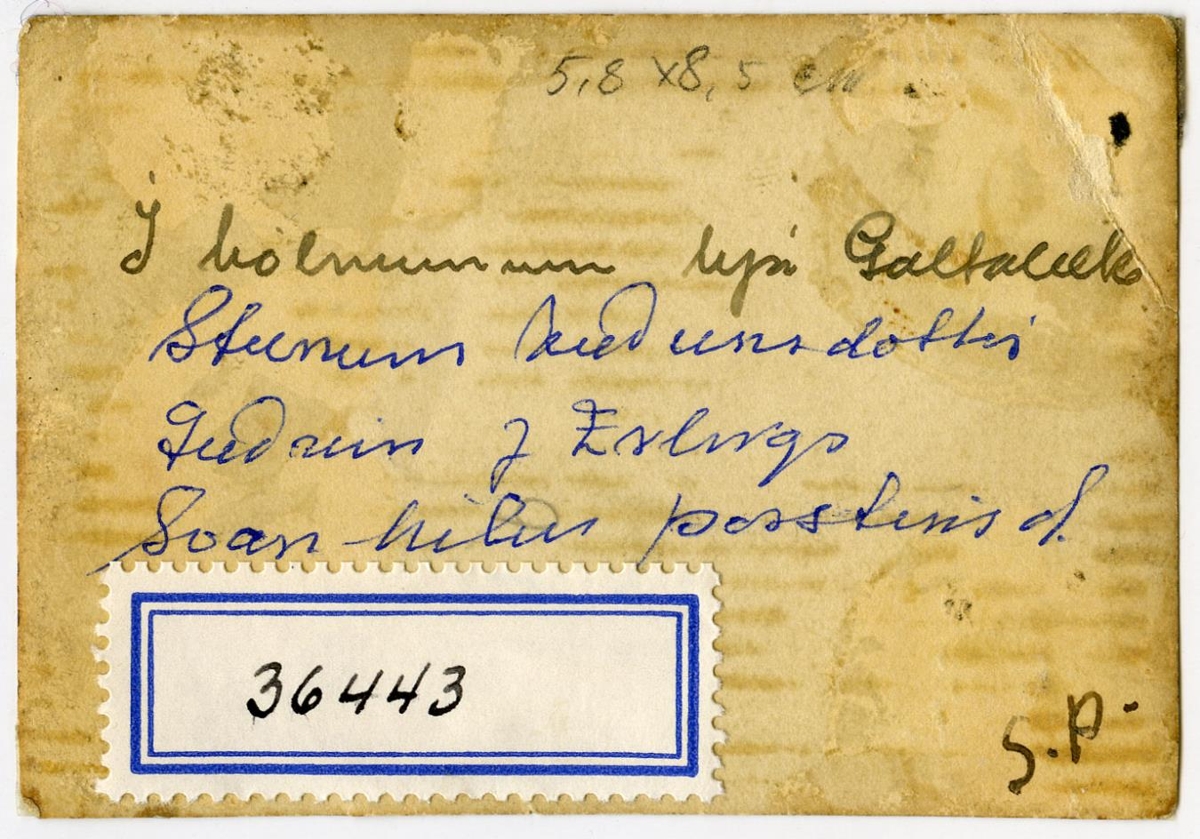 5,8 x 8,5 cm
Í hólmunum hjá Galtalæk
Steinunn Auðunsdóttir
Guðrún J Erlings
Svanhildur Þorsteinsd.
36443
S.P.